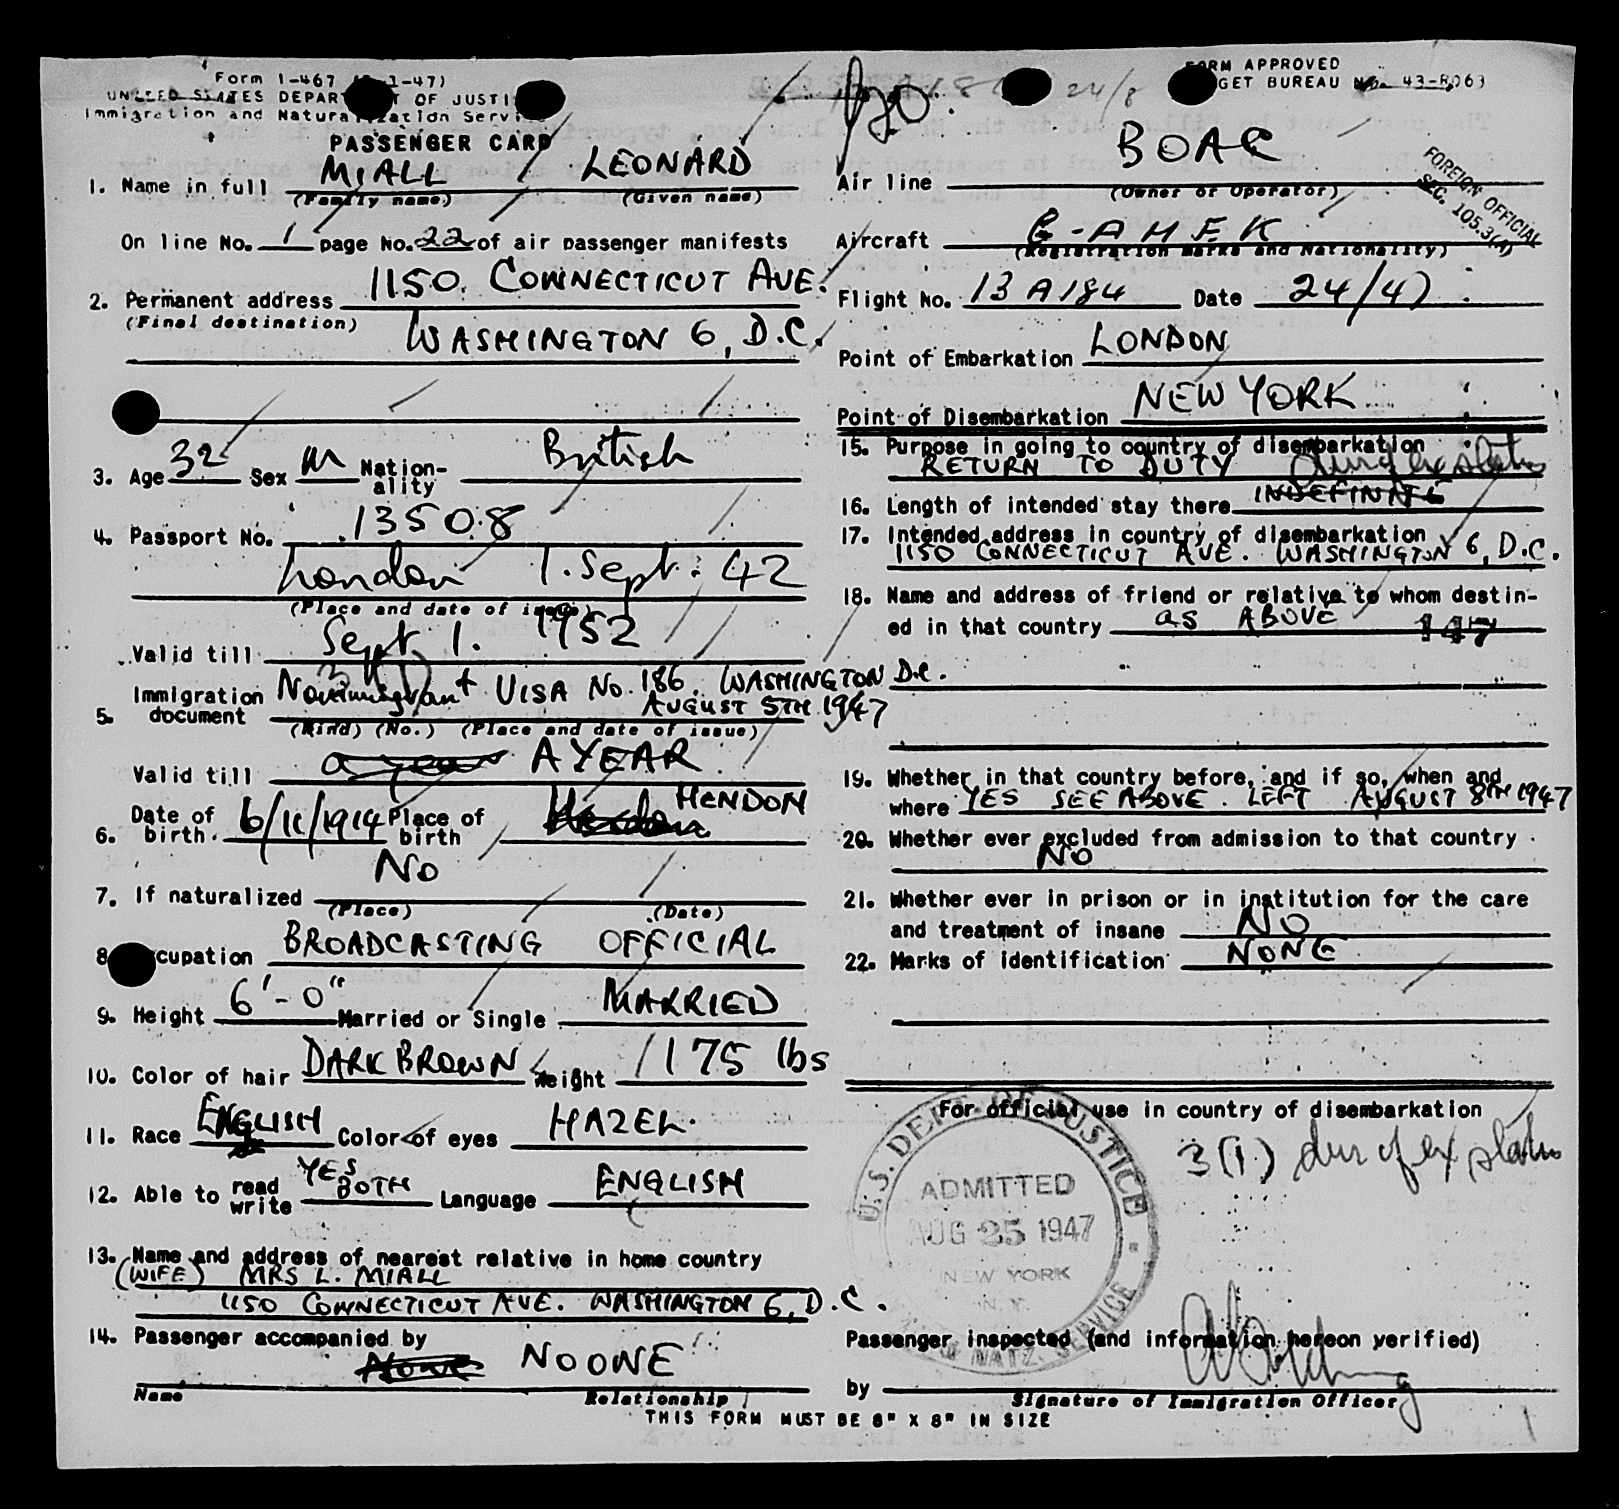 Form I-467 ( -1-47)
UNITED STATES DEPAR T OF JUSTI
Immigration and Naturalization Servi
PASSENGER CARD
1. Name in full MIALL LEONARD
(Family name) (Given name)
On line No. 1 page No. 22 of air passenger manifests
2. Permanent address 1150. CONNECTICUT AVE.
(Final destination) WASHINGTON 6, D.C.
3. Age 32 Sex M Nation-ality British
4. Passport No. 13508
London 1. Sept. 42
(Place and date of issue)
Valid till Sept. 1. 1952
5. Immigration document Nonimmigrant VISA No. 186. WASHINGTON D.C.
AUGUST 5TH 1947
(Kind) (No.) (Place and date of issue)
Valid till a year A YEAR
6. Date of birth 6/11/1914 Place of birth HENDON
7. If naturalized NO
(Place) (Date)
8. ccupation BROADCASTING OFFICIAL
9. Height 6'-0" Married or Single MARRIED
10. Color of hair DARK BROWN Weight 175 lbs
11. Race ENGLISH Color of eyes HAZEL.
12. Able to read write YES BOTH Language ENGLISH
13. Name and address of nearest relative in home country
(WIFE) MRS L. MIALL
1150 CONNECTICUT AVE. WASHINGTON 6, D.C.
14. Passenger accompanied by
None NOONE
Name Relationship
THIS FORM MUST BE 8" X 8" IN SIZE
24/8
FORM APPROVED
GET BUREAU No. 43-R063
FOREIGN OFFICIAL
SEC. 105.3(A)
Air line BOAC
(Owner or Operator)
Aircraft G-AHEK
(Registration marks and Nationality)
Flight No. 13A184 Date 24/47
Point of Embarkation LONDON
Point of Disembarkation NEW YORK
15. Purpose in going to country of disembarkation
RETURN TO DUTY
16. Length of intended stay there INDEFINITE
17. Intended address in country of disembarkation
1150 CONNECTICUT AVE. WASHINGTON 6, D.C.
18. Name and address of friend or relative to whom destin-
ed in that country as ABOVE 147
19. Whether in that country before, and if so, when and
where YES SEE ABOVE. LEFT AUGUST 8TH 1947
20. Whether ever excluded from admission to that country
NO
21. Whether ever in prison or in institution for the care
and treatment of insane NO
22. Marks of identification NONE
For official use in country of disembarkation
3(1) dur of ex status
U.S. DEPT. OF JUSTICE
ADMITTED
AUG 25 1947
NEW YORK
N.Y.
NATZ. SERVICE
Passenger inspected (and information hereon verified)
by
Signature of Immigration Officer